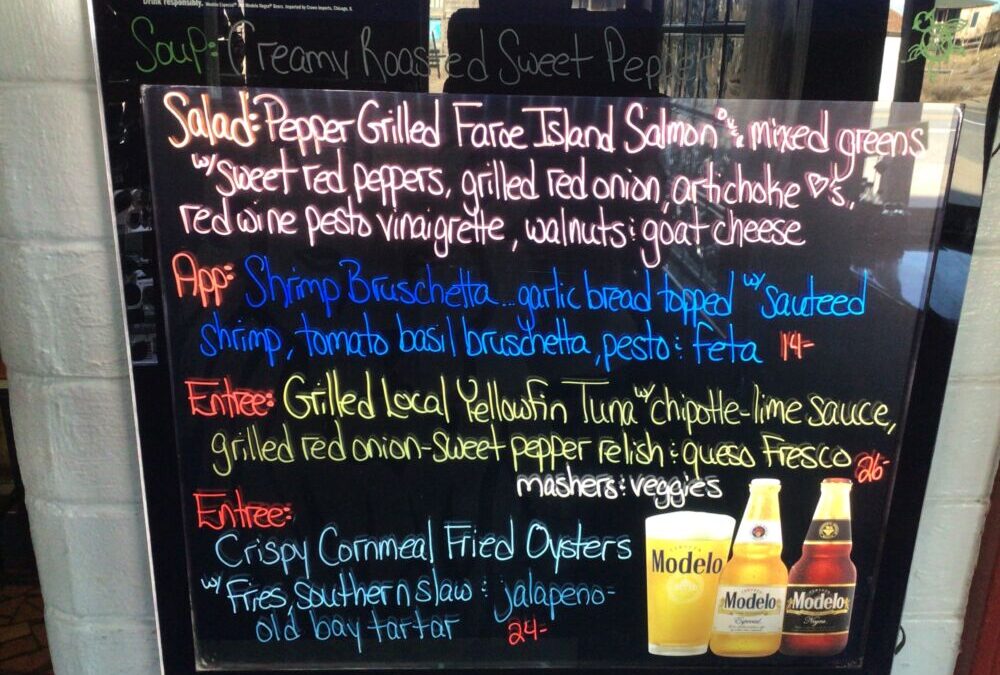 Drink responsibly. Modelo Especial® and Modelo Negra® Beers. Imported by Crown Imports, Chicago, IL
Soup: Creamy Roasted Sweet Pepper
Salad: Pepper Grilled Faroe Island Salmon over mixed greens
w/ sweet red peppers, grilled red onion, artichoke ♡'s,
red wine pesto vinaigrette, walnuts & goat cheese
App: Shrimp Bruschetta...garlic bread topped w/ sauteed
shrimp, tomato basil bruschetta, pesto & feta 14-
Entree: Grilled Local Yellowfin Tuna w/ chipotle-lime sauce,
grilled red onion-sweet pepper relish & queso Fresco 26-
mashers & veggies
Entree:
Crispy Cornmeal Fried Oysters
w/ Fries, southern slaw & jalapeno-
old bay tartar 24-
Modelo
Modelo
Especial
Modelo
Negra